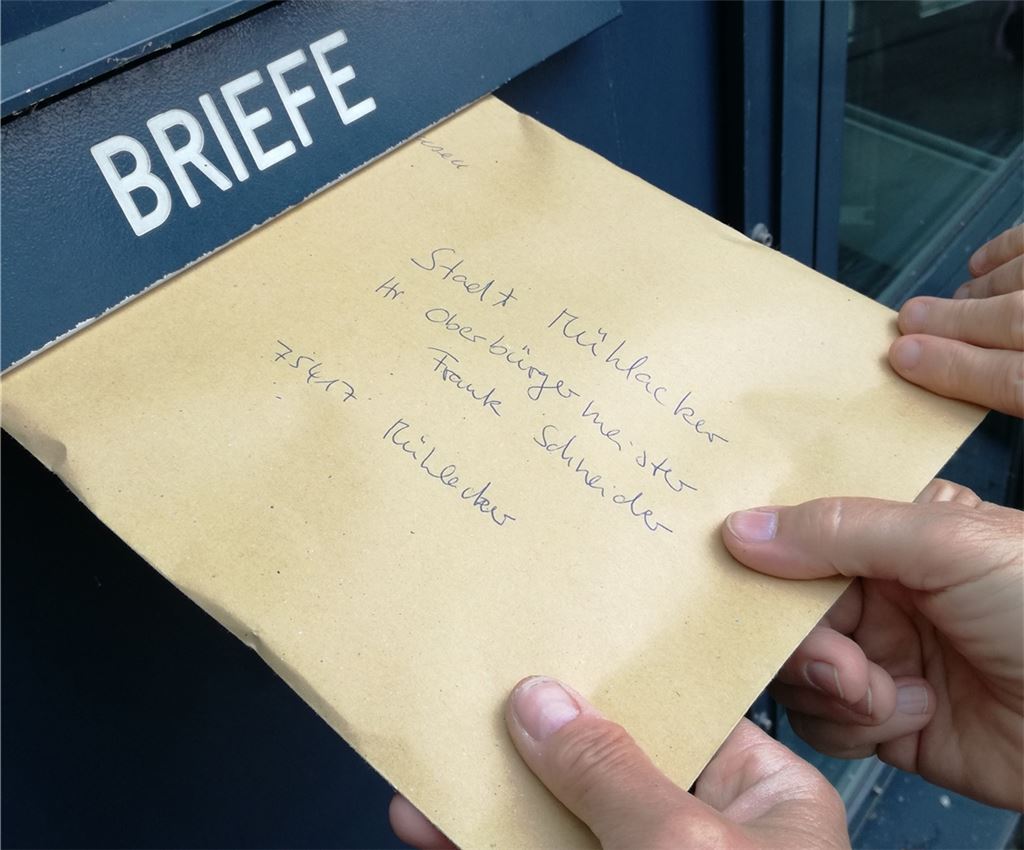 BRIEFE
Stadt Mühlacker
Hr Oberbürgermeister
Frank Schneider
75417 Mühlacker